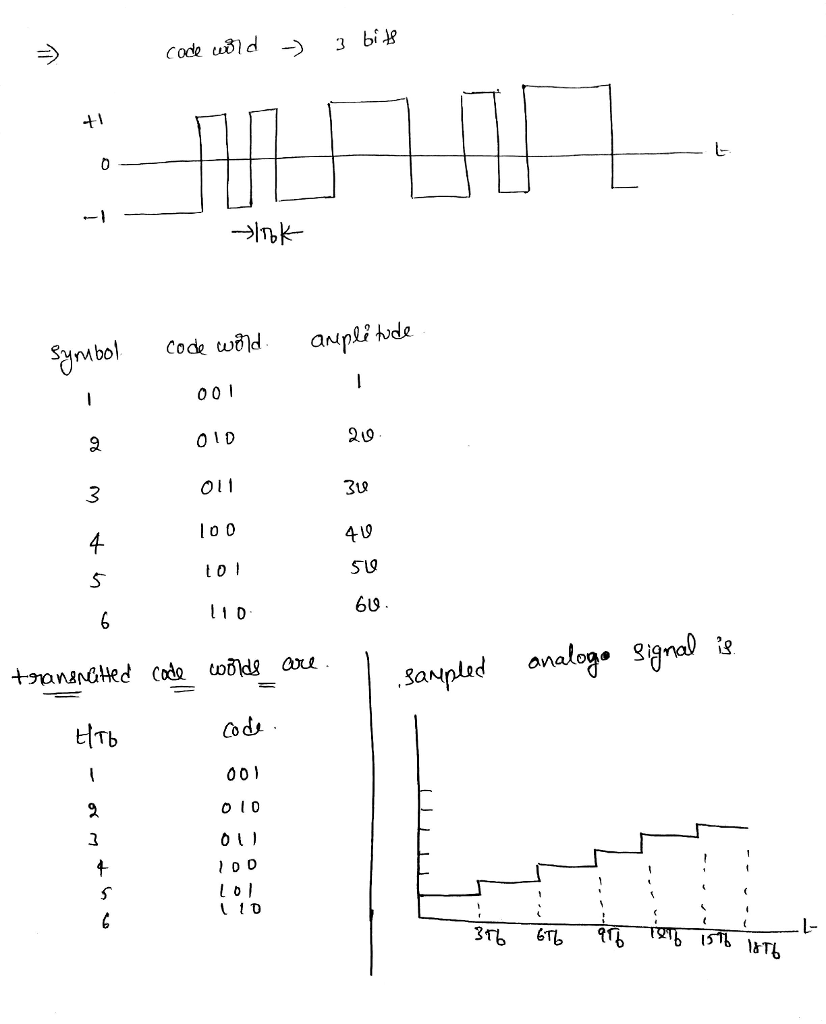 ⇒ code word → 3 bits
+1
0
t
-1
→|Tb|←
Symbol code word. amplitude
1 001 1
2 010 2v.
3 011 3v
4 100 4v
5 101 5v
6 110. 6v.
transmitted code words are.
t/Tb code.
1 001
2 010
3 011
4 100
5 101
6 110
Sampled analog signal is
3Tb 6Tb 9Tb 12Tb 15Tb 18Tb t